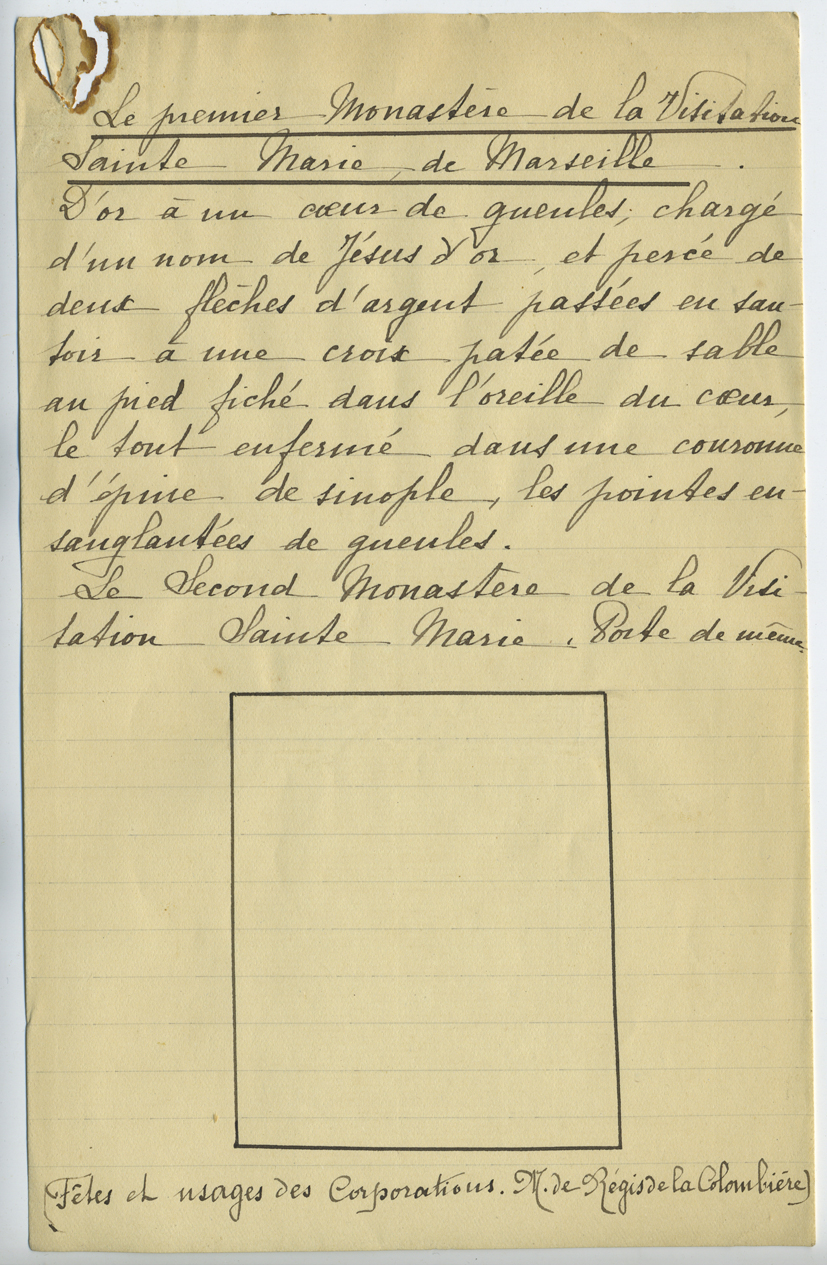 Le premier Monastère de la Visitation
Sainte Marie, de Marseille.
D'or à un cœur de gueules, chargé
d'un nom de Jésus d'or, et percé de
deux flèches d'argent passées en sau-
toir à une croix patée de sable
au pied fiché dans l'oreille du cœur,
le tout enfermé dans une couronne
d'épine de sinople, les pointes en-
sanglantées de gueules.
Le Second Monastère de la Visi-
tation Sainte Marie. Porte de même.
(Fêtes et usages des Corporations. M. de Régis de la Colombière)